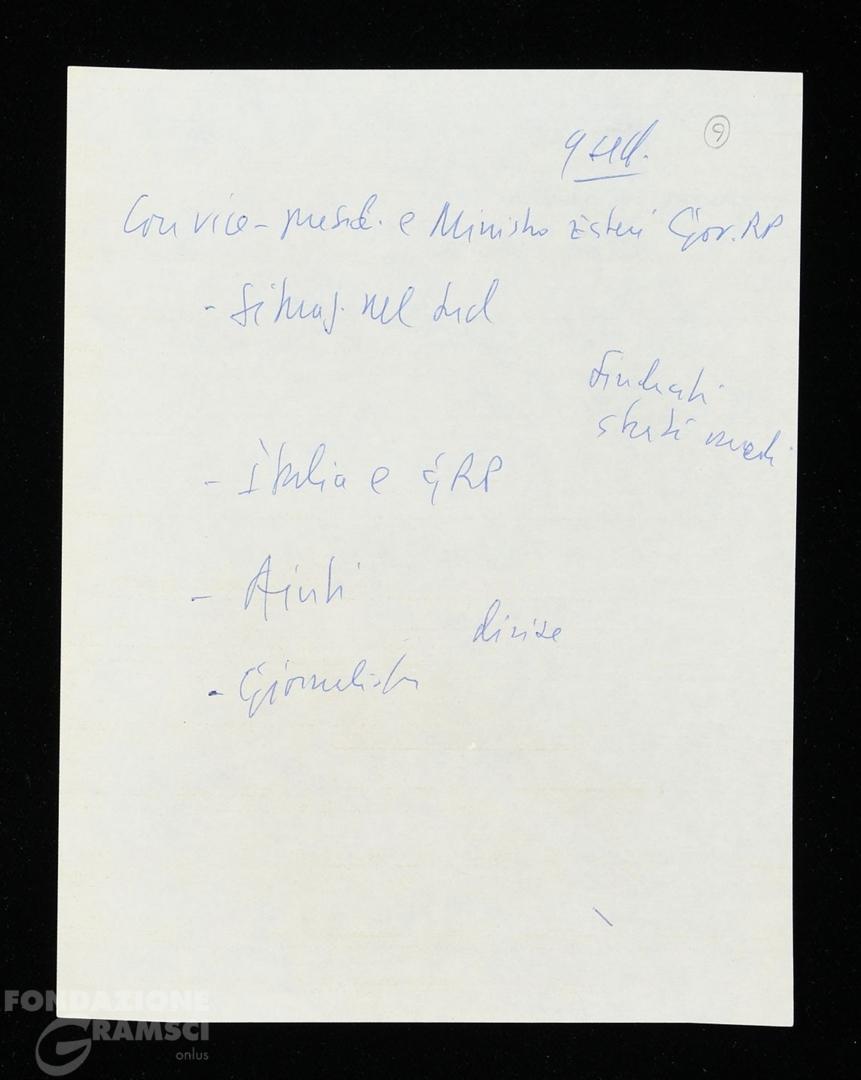 9
9 sed.
Con vice-presid. e Ministro Esteri Gov. RP
- Situaz. nel Sud
Sindacati
strati medi
- Italia e GRP
- Aiuti
divise
- Giornalisti
FONDAZIONE
GRAMSCI
onlus